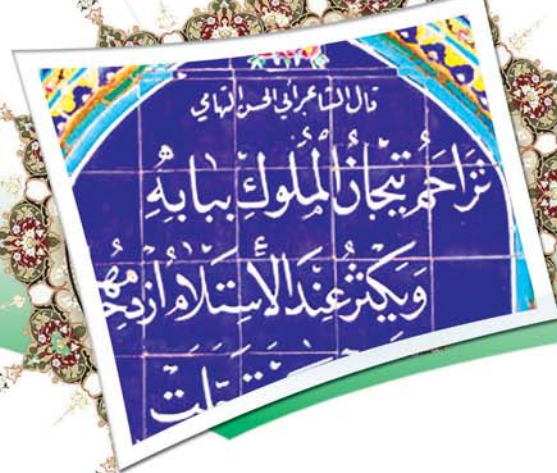 قال الشاعر ابي الحسن التهامي
تَزَاحَمُ تِيجَانُ المُلُوكِ بِبَابِهِ
وَيَكْثُرُ عِنْدَ الأِسْتِلَامِ ازْدِحَامُهَا